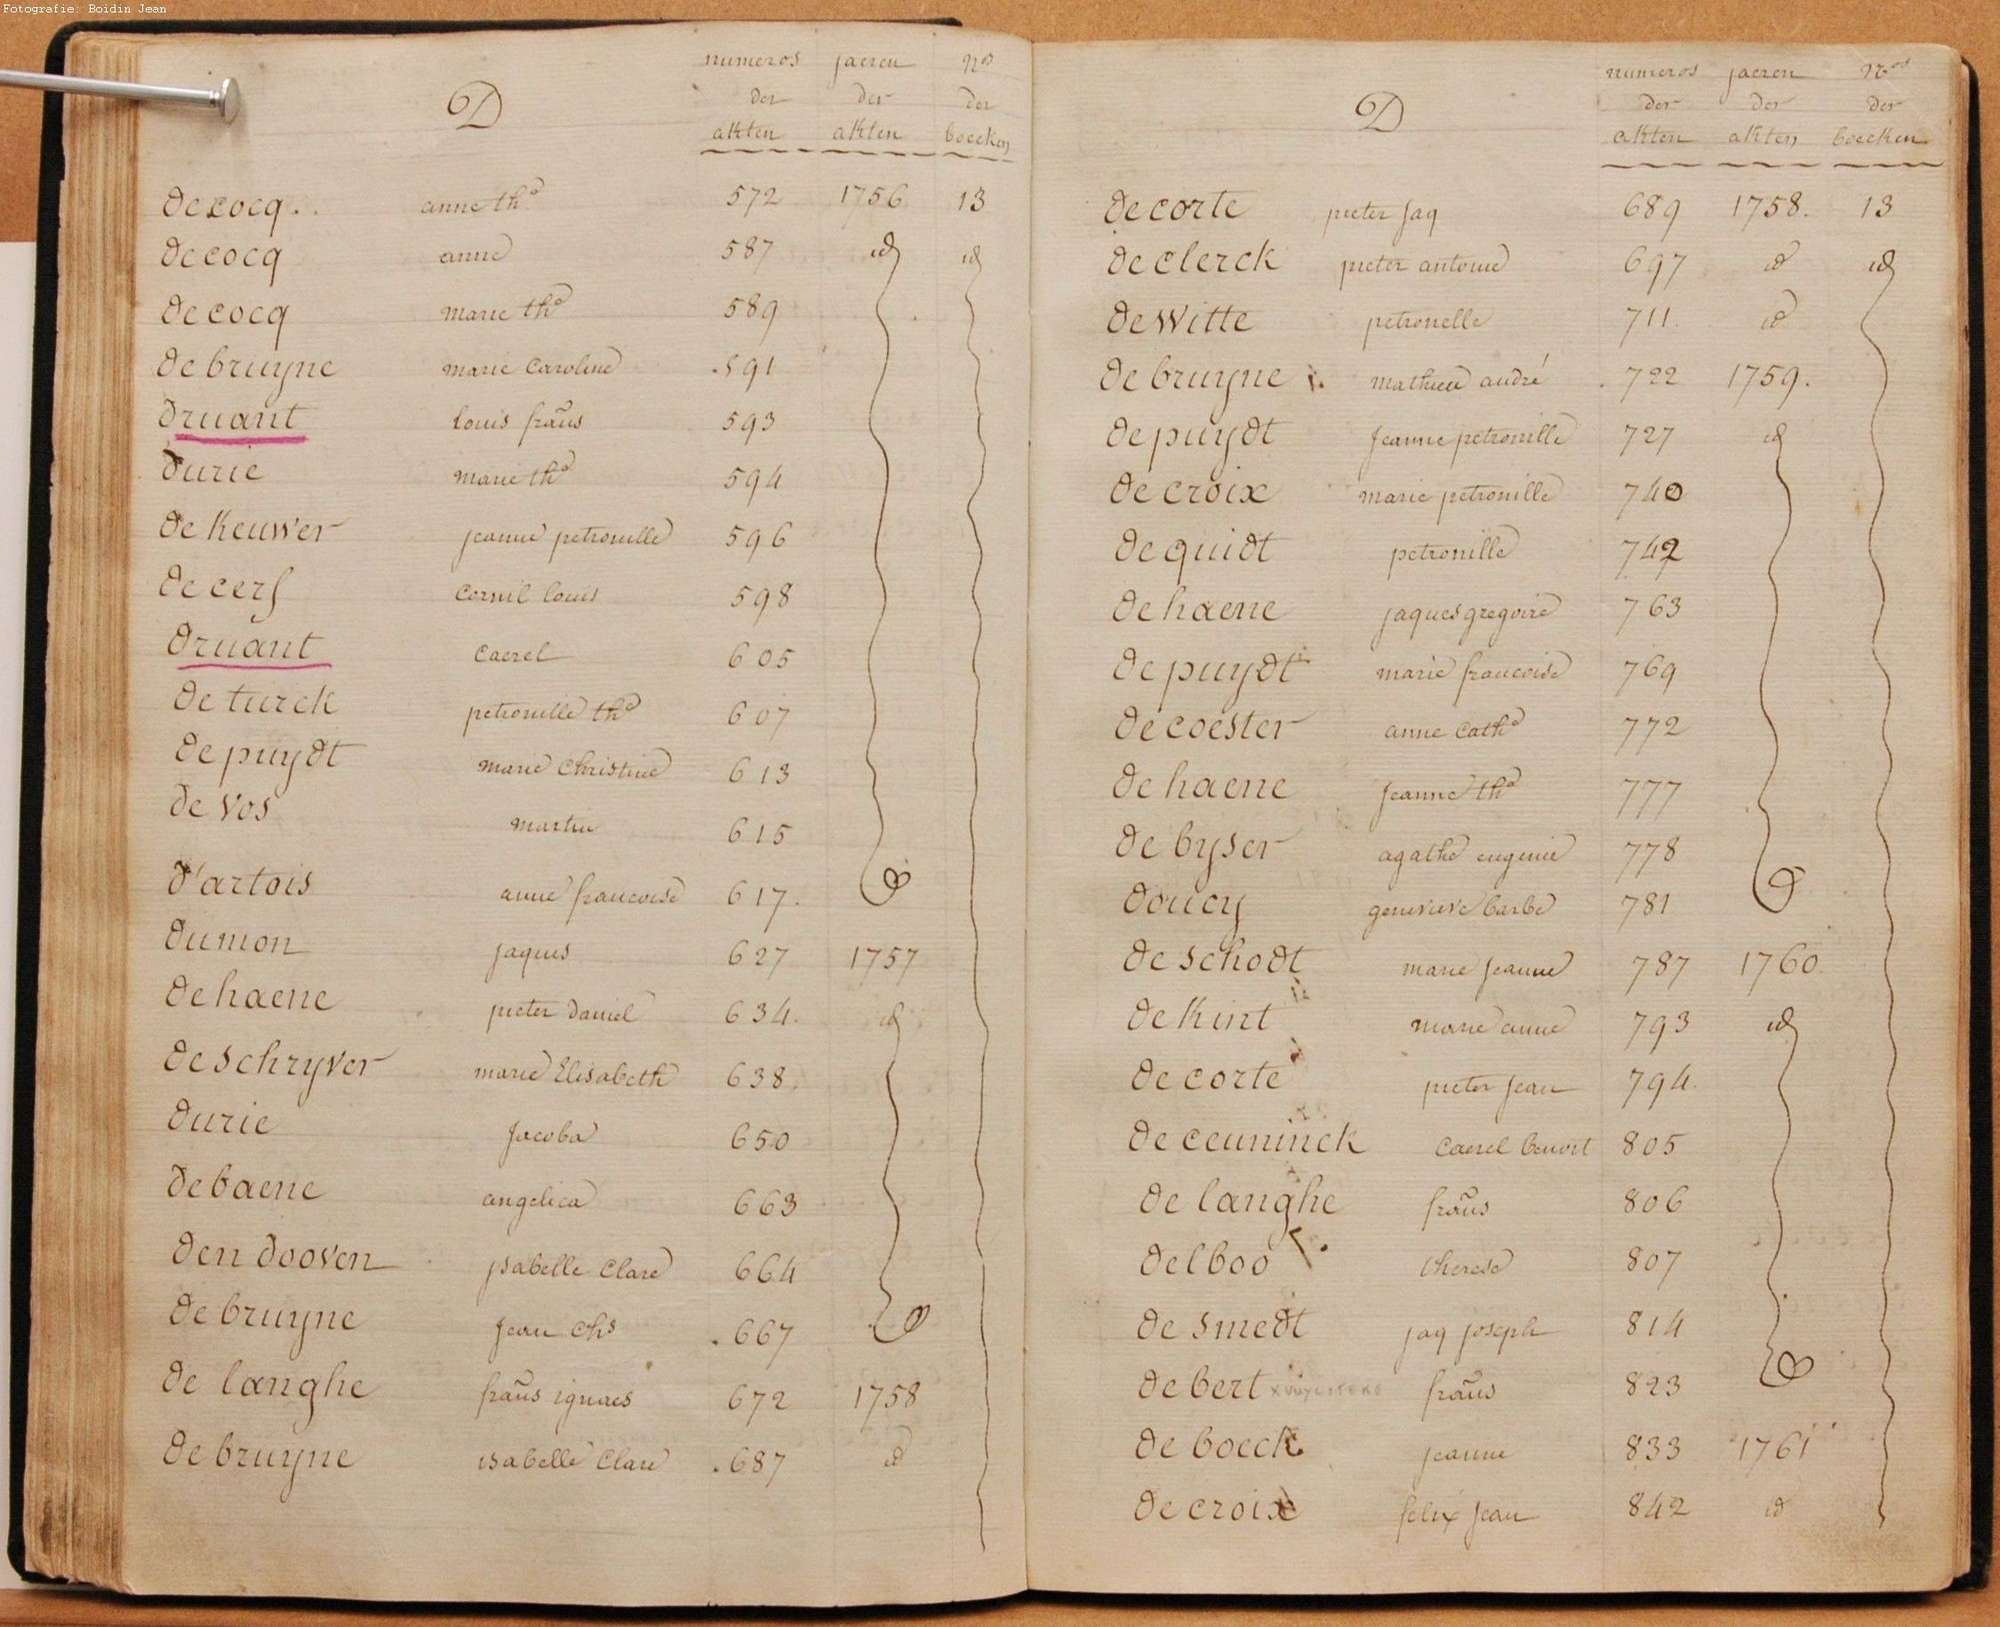 Fotografie: Boidin Jean
D numeros jaeren Nos
der der der
akten akten boecken
De cocq. anne tha 572 1756 13
De cocq anne 587 id id
De cocq marie tha 589
De bruyne marie Caroline 591
Druant louis fraũs 593
Durie marie tha 594
De Keuwer jeanne petronille 596
De cerf Cornil louis 598
Druant Caerel 605
De turck petronille tha 607
De puydt marie Christine 613
De Vos martin 615
D'artois anne francoise 617.
Dumon jaques 627 1757
De haene pieter Daniel 634. id
De Schryver marie Elisabeth 638.
Durie Jacoba 650
De baene angelica 663
Den dooven ysabelle Clare 664
De bruyne Jean Chs 667
De langhe fraũs ignaes 672 1758
De bruyne isabelle Clare 687 id
D numeros jaeren Nos
der der der
akten akten boecken
De corte pieter Jaq 689 1758. 13
De clerck pieter antoine 697 id id
De Witte petronelle 711. id
De bruyne mathieu andré 722 1759.
De puydt Jeanne petronille 727 id
De croix marie petronille 740
De quidt petronille 742
De haene jaques gregoire 763
De puydt marie francoise 769
De coester anne Catha 772
De haene Jeanne tha 777
De byser agathe eugenie 778
Doucy genevieve barbe 781
De Schodt marie Jeanne 787 1760
De Kint marie anne 793 id
De corte pieter Jean 794.
De ceuninck Caerel benoit 805
De langhe fraũs 806
Delboo therese 807
De Smedt jaq joseph 814
De bert fraũs 823
De boeck jeanne 833 1761
De croix felix Jean 842 id